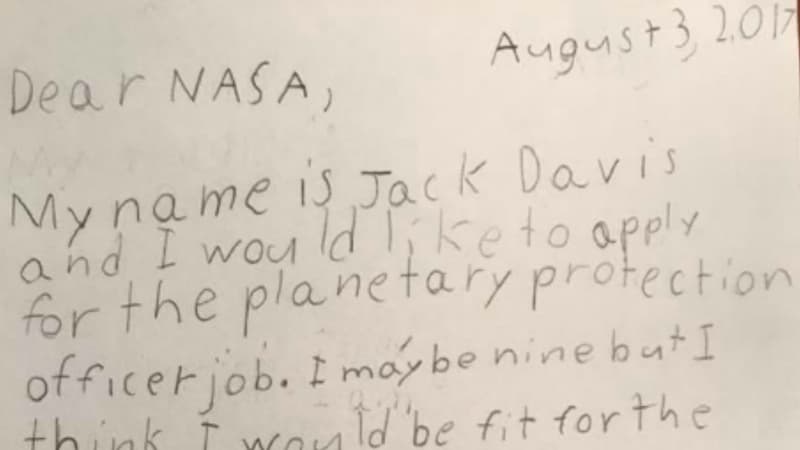 August 3, 2017
Dear NASA,
My name is Jack Davis
and I would like to apply
for the planetary protection
officer job. I may be nine but I
think I would be fit for the